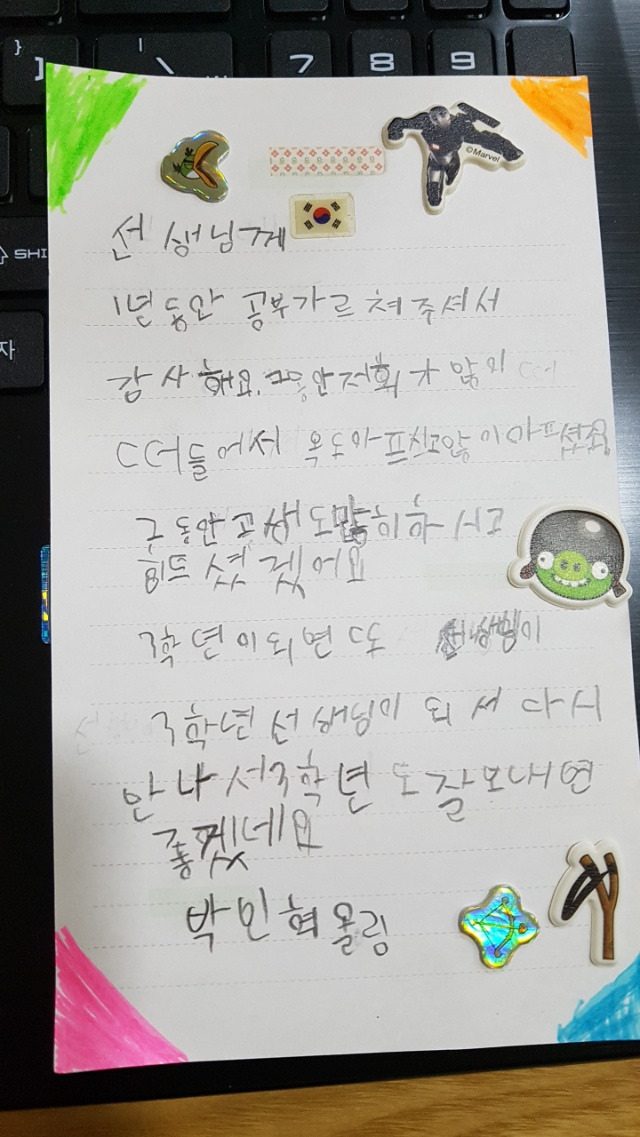 } ] | \ 7 8 9
SHI
자
©Marvel
선생님께
1년동안 공부가르쳐주셔서
감사해요. 그동안저희가 많이
떠들어서 목도아프시고많이아프셨죠
그동안고생도많이하시고
힘드셨겠어요
3학년이되면 또 선생님이
3학년선생님이 되서 다시
만나서3학년도잘보내면
좋겠네요
박민혁올림